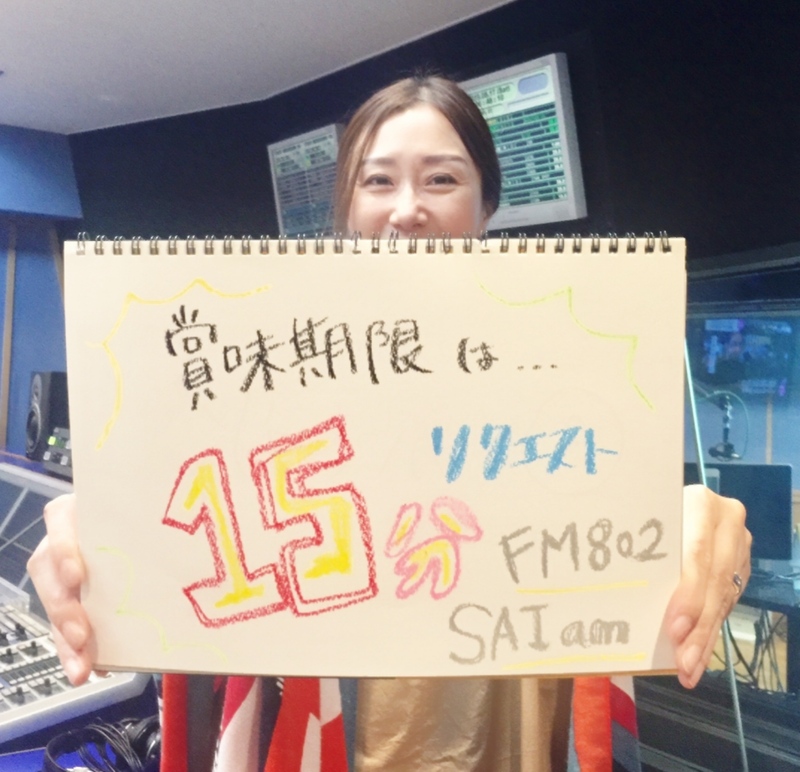 賞味期限は...
リクエスト
15分
FM802
SAIam